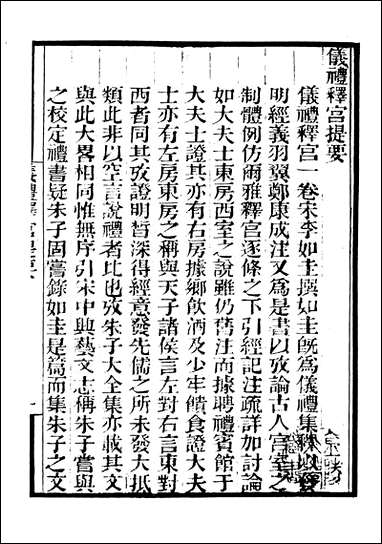 儀禮釋宮提要
儀禮釋宮一卷宋李如圭撰如圭旣爲儀禮集釋以
明經義羽翼鄭康成注又爲是書以攷論古人宮室之
制體例仿爾雅釋宮逐條之下引經記注疏詳加討論
如大夫士東房西室之說雖仍舊注而據聘禮賓館于
大夫士證其亦有右房據鄉飲酒及少牢饋食證大夫
士亦有左房東房之稱與天子諸侯言左對右言東對
西者同其攷證明晳深得經意發先儒之所未發大抵
類此非以空言說禮者比也攷朱子大全集亦載其文
與此大畧相同惟無序引宋中興藝文志稱朱子嘗與
之校定禮書疑朱子固嘗錄如圭是篇而集朱子之文